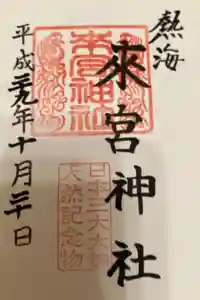 熱海
來宮神社
來宮神社
日本三大大楠
天然記念物
平成二十九年十月日